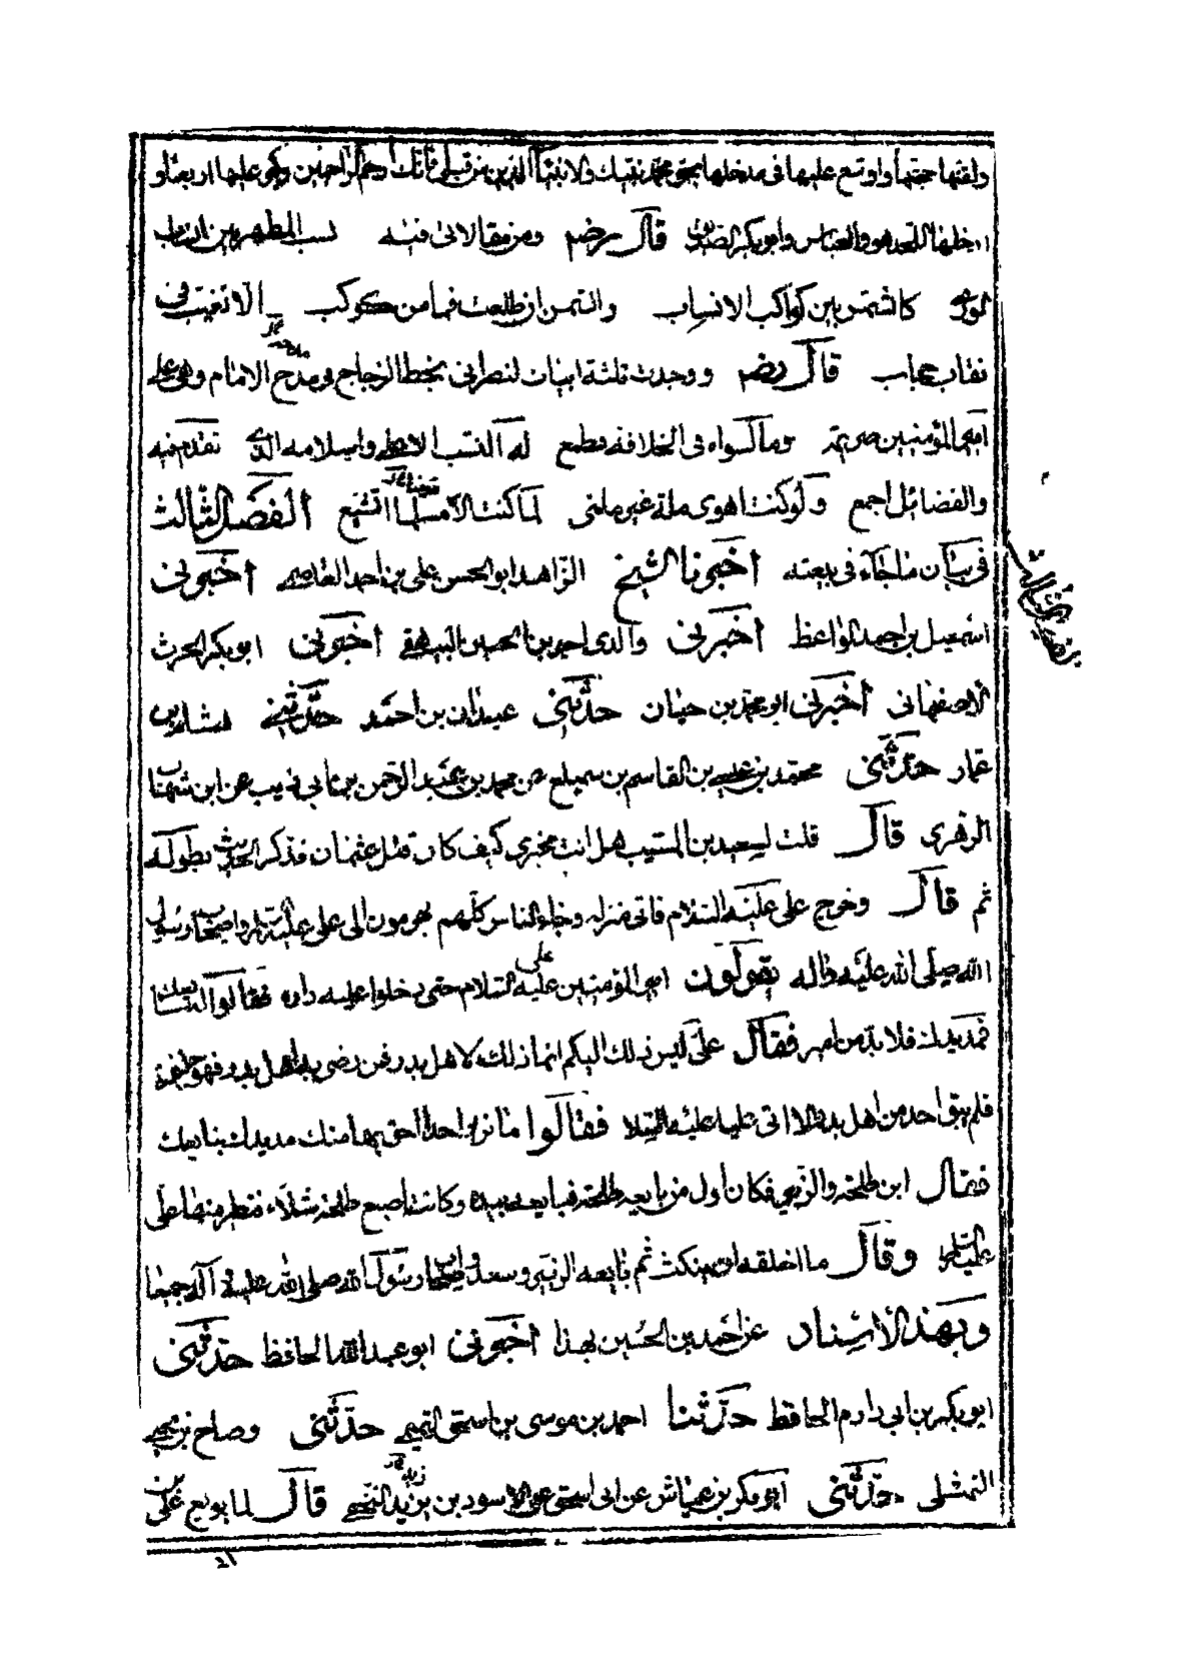 ولقنها حجتها واوسع عليها فى مدخلها بحق محمد نبيك والانبيآء الذين من قبلى فانك ارحم الراحمين وكبر عليها اربعا و
ادخلها اللحد هو والعباس وابو بكر الصديق قال رضه ومن مقالاتى فيه نسب المطهر بين انساب
الورى كالشمس بين كواكب الانساب والشمس ان طلعت فما من كوكب الا تغيب فى
نقاب حجاب قال رضه ووجدت ثلثة ابيات لنصرانى بخط الزجاج فى مدح الامام وهى على
امير المؤمنين صريمة وما لسواه فى الخلافة مطمع له النسب الاعلى واسلامه الذى تقدم فيه
والفضائل اجمع ولو كنت اهوى ملة غير ملتى لما كنت الا مسلما اتشيع الفصل الثالث
فى بيان ما جاء فى بيعته اخبرنا الشيخ الزاهد ابو الحسن على بن احمد العاصمى اخبرنى
اسمعيل بن احمد الواعظ اخبرنى والدى احمد بن الحسين البيهقى اخبرنى ابو بكر الحرث
الاصفهانى اخبرنى ابو محمد بن حيان حدثنى عبدان بن احمد حدثنى هشام بن
عمار حدثنى محمد بن عيسى بن القاسم بن سميع عن محمد بن عبد الرحمن بن ابى ذيب عن ابن شهاب
الزهرى قال قلت لسعيد بن المسيب هل انت مخبرى كيف كان قتل عثمان فذكر الحديث بطوله
ثم قال وخرج على عليه السلام فاتى منزله وجاء الناس كلهم يهرعون الى على عليه السلم واصحاب رسول
الله صلى الله عليه واله يقولون امير المؤمنين على عليه السلام حتى دخلوا عليه داره فقالوا له نبايعك
فمد يدك فلا بد من امير فقال على ليس ذلك اليكم انما ذلك لاهل بدر فمن رضى به اهل بدر فهو خليفة
فلم يبق احد من اهل بدر الا اتى عليا عليه السلام فقالوا ما نرى احدا احق بها منك مد يدك نبايعك
فقال اين طلحة والزبير فكان اول من بايعه طلحة فبايعه بيده وكانت اصبع طلحة شلآء فتطير منها على
عليه السلم وقال ما اخلقه ان ينكث ثم بايعه الزبير وسعد واصحاب رسول الله صلى الله عليه واله جميعا
وبهذا الاسناد عن احمد بن الحسين بهذا اخبرنى ابو عبد الله الحافظ حدثنى
ابو بكر بن ابى دارم الحافظ حدثنا احمد بن موسى بن اسحق التميمى حدثنى وضاح بن يحيى
النهشلى حدثنى ابو بكر بن عياش عن ابى اسحق عن الاسود بن يزيد النخعى قال لما بويع على بن